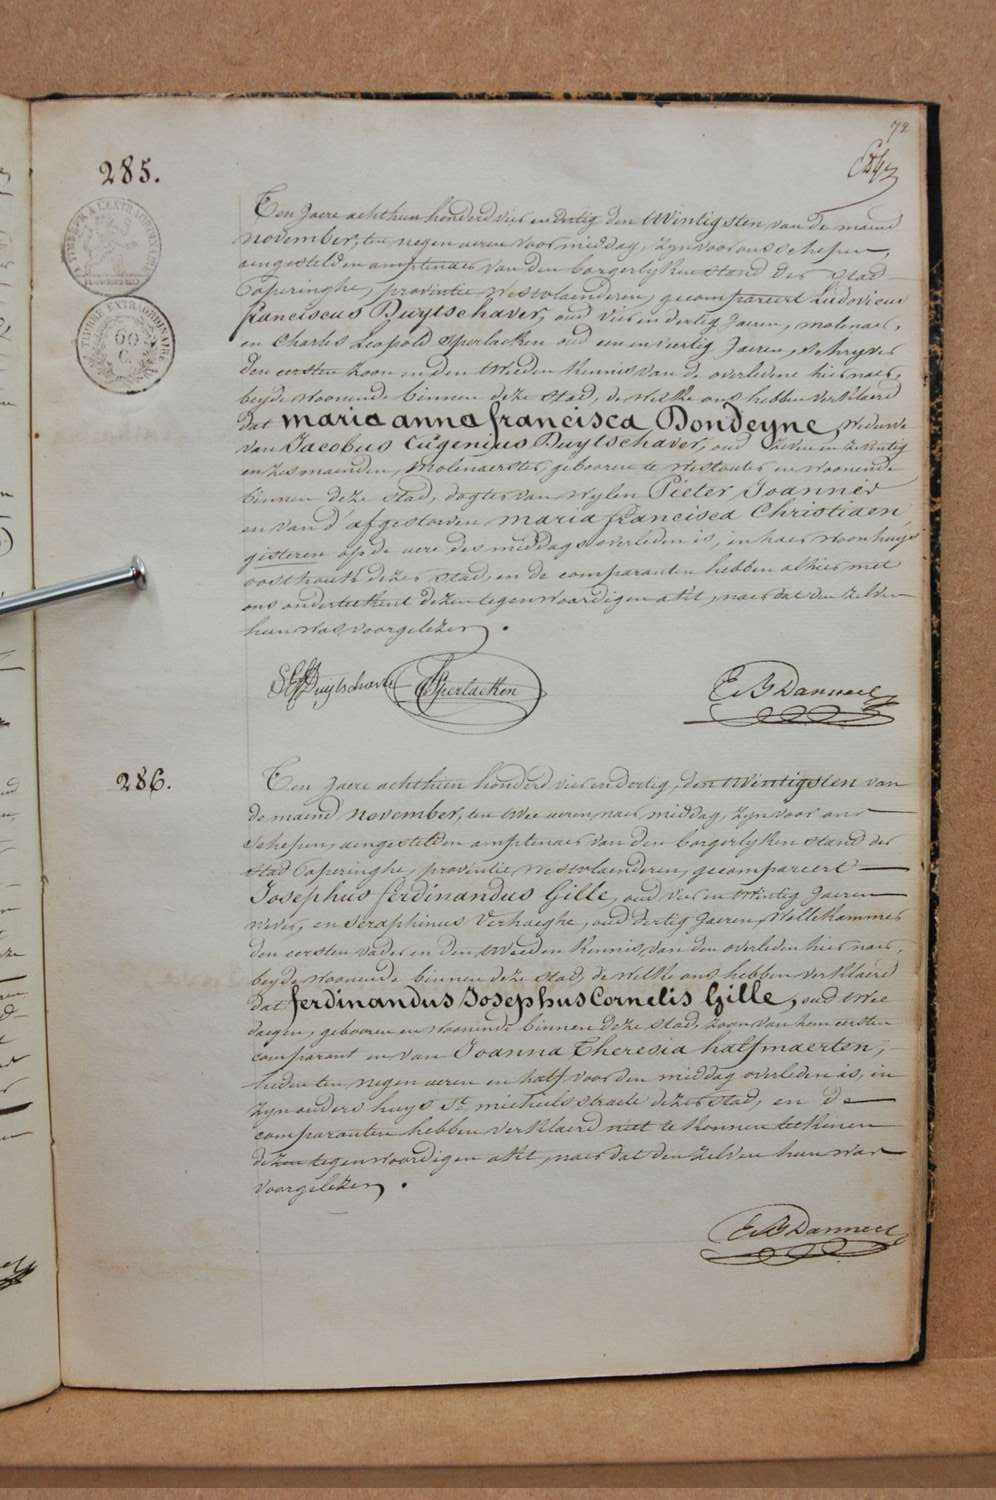 72
285.
Ten Jaere achthien honderd vier en dertig den twintigsten van de maend
november, ten negen aeren voor middag, zyn voor ons schepen,
aengestelden amptenaer van den borgerlyken stand der Stad
Poperinghe, provintie Westvlaenderen, gecompareert Ludovicus
franciscus Duytschaver, oud vier en dertig Jaeren, molenaer,
en Charles Leopold Sperlacken oud een en viertig Jaeren, schryver
den eersten zoon en den tweeden kennis van de overledene hier naer,
beyde woonende binnen deze stad, de welke ons hebben verklaerd
dat maria anna francisca Dondeyne, weduwe
van Jacobus Eugenius Duytschaver, oud zeven en zeventig
en zes maenden, molenaerster, gebooren te Westouter en woonende
binnen deze stad, dogter van wylen Pieter Joannes
en van d'afgestorven maria francisca Christiaen,
gisteren op de uere des middags overleden is, in haer woonhuys
oosthouck dezer stad, en de comparanten hebben alhier met
ons onderteekent dezen tegenwoordigen akt, naer dat den zelven
hun was voorgelezen.
Duytschaver Sperlacken E. B. Danneel
TIMBRE EXTRAORDINAIRE
60
C.
286.
Ten Jaere achthien honderd vier en dertig, den twintigsten van
de maend november, ten twee aeren, naer middag, zyn voor ons
schepen, aengestelden amptenaer van den borgerlyken stand der
stad Poperinghe, provintie, Westvlaenderen, gecompareert
Josephus ferdinandus Gille, oud vier en twintig Jaeren
wever, en Seraphinus Verhaeghe, oud dertig Jaeren, Wollekammer
den eersten vader en den tweeden kennis, van den overleden hier naer,
beyde woonende binnen deze stad, de welke ons hebben verklaerd
dat ferdinandus Josephus Cornelis Gille, oud twee
daegen, gebooren en woonende binnen deze stad, zoon van hem eersten
comparant en van Joanna Theresia halfmaerten,
heden ten negen aeren en half voor den middag overleden is, in
zyn ouders huys St. michiels straete dezer stad, en de
comparanten hebben verklaerd niet te konnen teekenen
dezen tegenwoordigen akt, naer dat den zelven hun was
voorgelezen.
E. B. Danneel